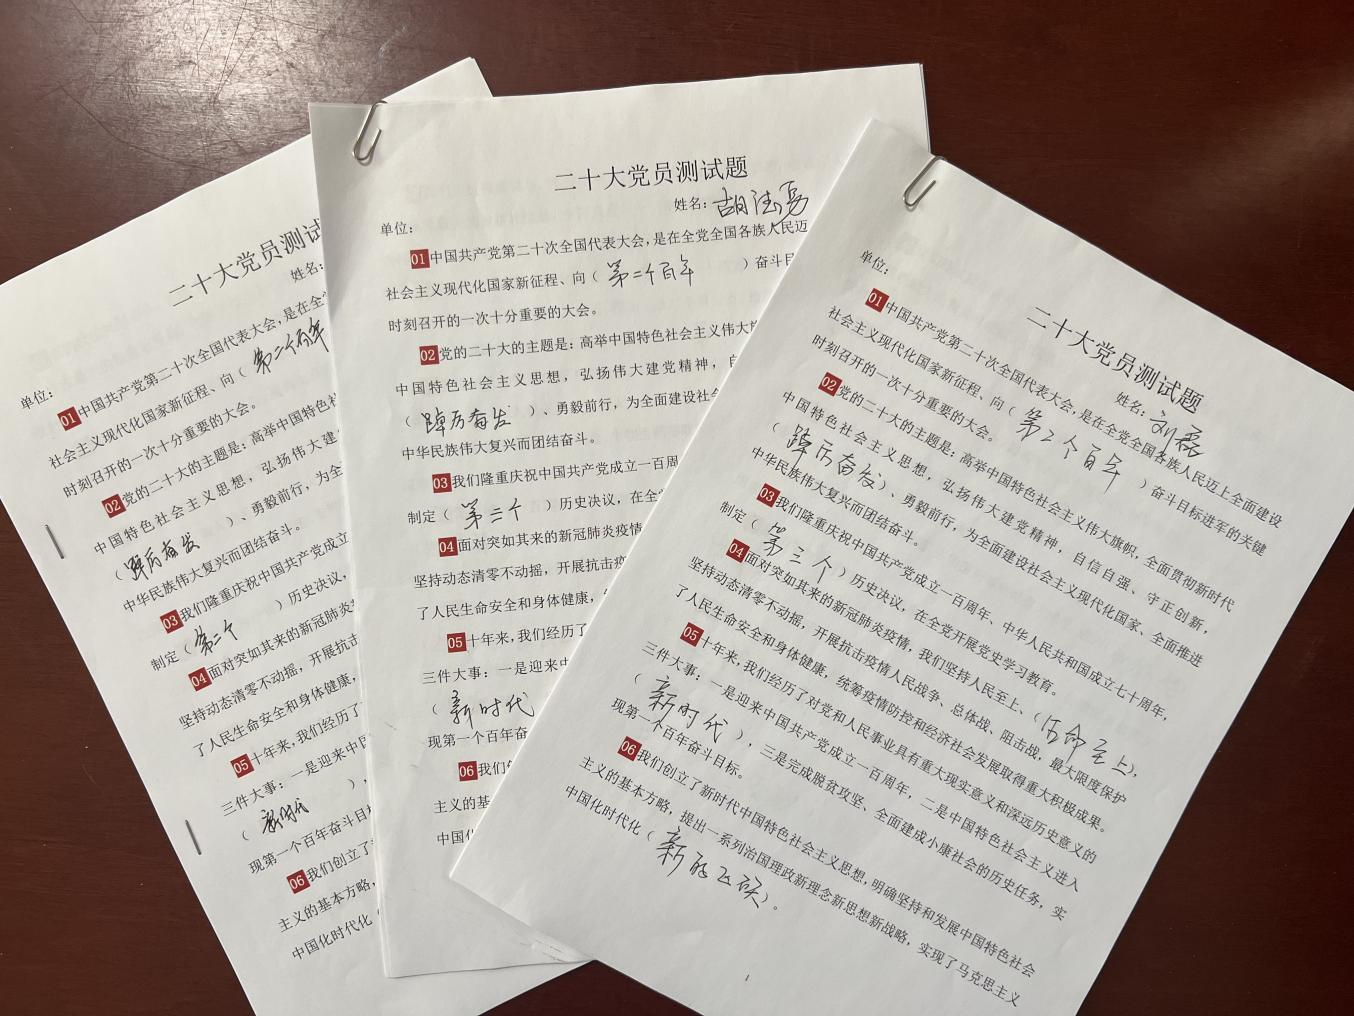 二十大党员测试
姓名:
单位:
01中国共产党第二十次全国代表大会,是在全
社会主义现代化国家新征程、向(第二个百年
时刻召开的一次十分重要的大会。
02党的二十大的主题是:高举中国特色社
中国特色社会主义思想,弘扬伟大建
(踔厉奋发)、勇毅前行,为全
中华民族伟大复兴而团结奋斗。
03我们隆重庆祝中国共产党成立
制定(第三个)历史决议,
04面对突如其来的新冠肺炎
坚持动态清零不动摇,开展抗击
了人民生命安全和身体健康,
05十年来,我们经历了
三件大事:一是迎来中国
(新时代),
现第一个百年奋斗目
06我们创立了
主义的基本方略,
中国化时代化(
二十大党员测试题
姓名:胡法勇
单位:
01中国共产党第二十次全国代表大会,是在全党全国各族人民迈
社会主义现代化国家新征程、向(第二个百年)奋斗目
时刻召开的一次十分重要的大会。
02党的二十大的主题是:高举中国特色社会主义伟大旗
中国特色社会主义思想,弘扬伟大建党精神,自
(踔厉奋发)、勇毅前行,为全面建设社会
中华民族伟大复兴而团结奋斗。
03我们隆重庆祝中国共产党成立一百周
制定(第三个)历史决议,在全
04面对突如其来的新冠肺炎疫情
坚持动态清零不动摇,开展抗击疫
了人民生命安全和身体健康,
05十年来,我们经历了
三件大事:一是迎来中
(新时代
现第一个百年奋
06我们
主义的基
中国化
二十大党员测试题
姓名:刘磊
单位:
01中国共产党第二十次全国代表大会,是在全党全国各族人民迈上全面建设
社会主义现代化国家新征程、向(第2个百年)奋斗目标进军的关键
时刻召开的一次十分重要的大会。
02党的二十大的主题是:高举中国特色社会主义伟大旗帜,全面贯彻新时代
中国特色社会主义思想,弘扬伟大建党精神,自信自强、守正创新,
(踔厉奋发)、勇毅前行,为全面建设社会主义现代化国家、全面推进
中华民族伟大复兴而团结奋斗。
03我们隆重庆祝中国共产党成立一百周年、中华人民共和国成立七十周年,
制定(第三个)历史决议,在全党开展党史学习教育。
04面对突如其来的新冠肺炎疫情,我们坚持人民至上、(命至上),
坚持动态清零不动摇,开展抗击疫情人民战争、总体战、阻击战,最大限度保护
了人民生命安全和身体健康,统筹疫情防控和经济社会发展取得重大积极成果。
05十年来,我们经历了对党和人民事业具有重大现实意义和深远历史意义的
三件大事:一是迎来中国共产党成立一百周年,二是中国特色社会主义进入
(新时代),三是完成脱贫攻坚、全面建成小康社会的历史任务,实
现第一个百年奋斗目标。
06我们创立了新时代中国特色社会主义思想,明确坚持和发展中国特色社会
主义的基本方略,提出一系列治国理政新理念新思想新战略,实现了马克思主义
中国化时代化(新的飞跃)。
1